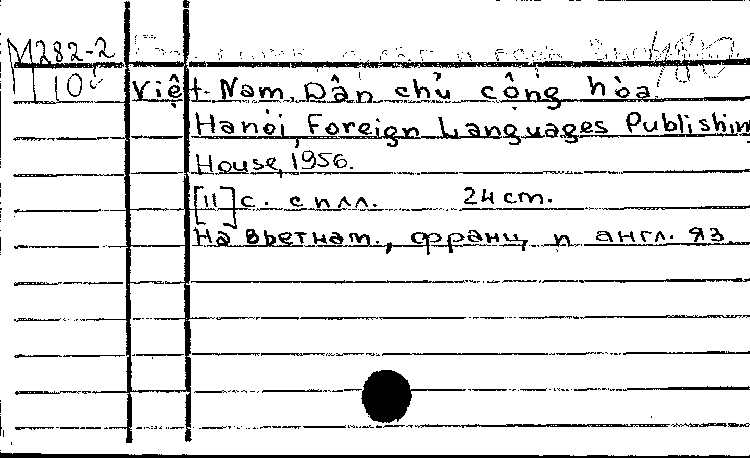 M282-2
10
Việt-Nam. Dân chủ cộng hòa.
Hanoi, Foreign Languages Publishin
House, 1956.
[11] с. с илл. 24 cm.
На вьетнам., франц. и англ. яз.